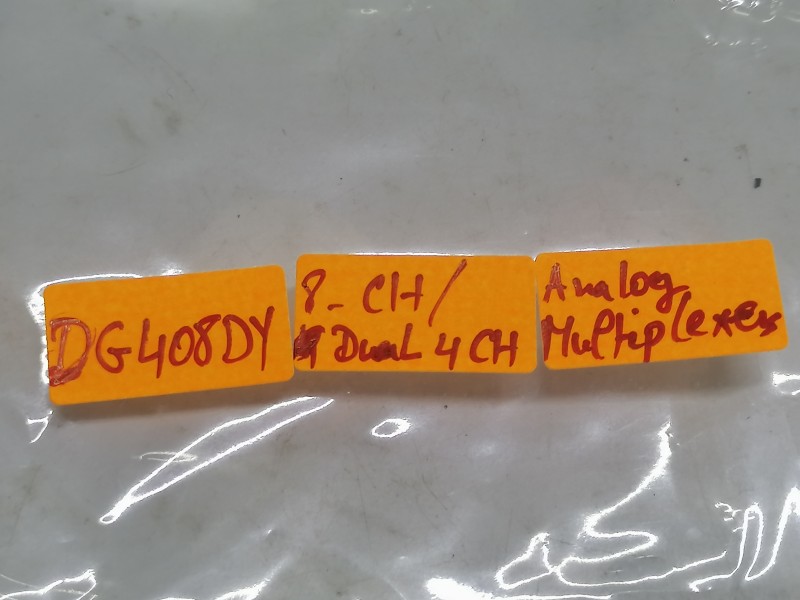 DG408DY
8-CH/
Dual 4 CH
Analog
Multiplexers